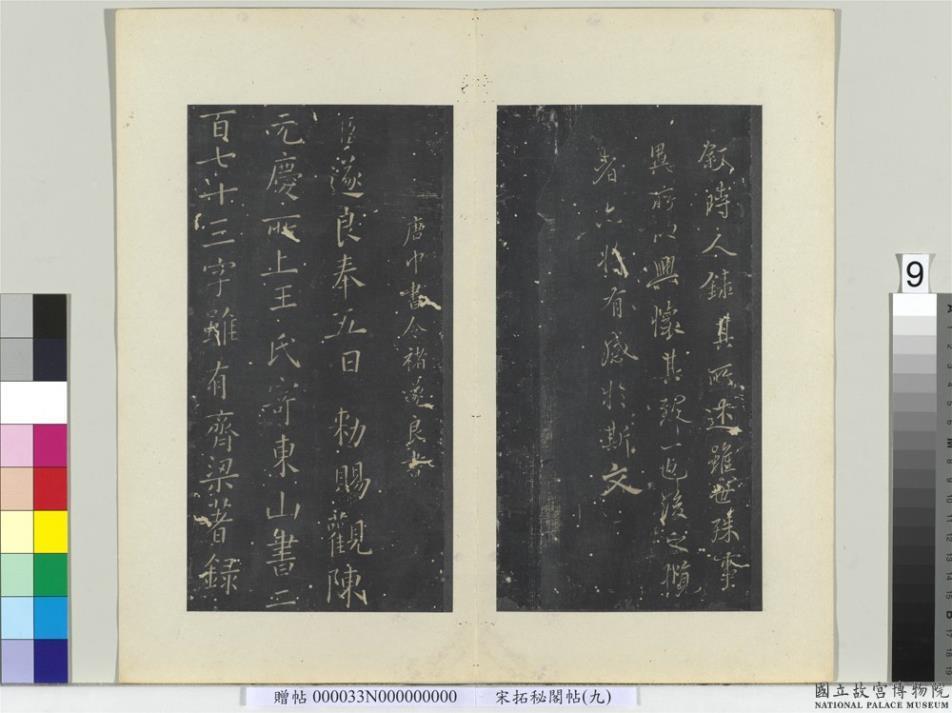 敘時人錄其所述雖世殊事
異所以興懷其致一也後之攬
者亦將有感於斯文
唐中書令褚遂良書
臣遂良奉五日 勑賜觀陳
元慶所上王氏寄東山書二
百七十三字雖有齊梁著録
9
贈帖 000033N000000000 宋拓秘閣帖(九)
國立故宮博物院
NATIONAL PALACE MUSEUM